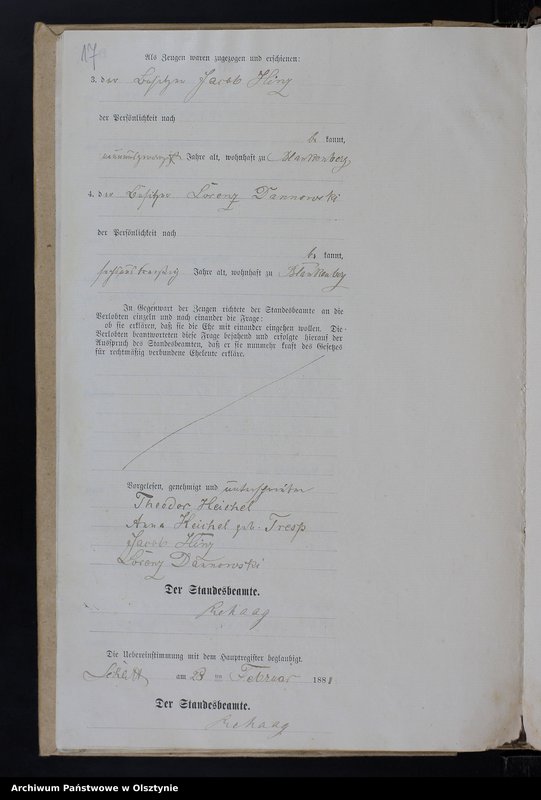 17
Als Zeugen waren zugezogen und erschienen:
3. der Besitzer Jacob Hinz
der Persönlichkeit nach
be kannt,
Jahre alt, wohnhaft zu Blankenberg
4. der Besitzer Lorenz Dannowski
der Persönlichkeit nach
be kannt,
Jahre alt, wohnhaft zu Blankenberg
In Gegenwart der Zeugen richtete der Standesbeamte an die
Verlobten einzeln und nach einander die Frage:
ob sie erklären, daß sie die Ehe mit einander eingehen wollen. Die
Verlobten beantworteten diese Frage bejahend und erfolgte hierauf der
Ausspruch des Standesbeamten, daß er sie nunmehr kraft des Gesetzes
für rechtmäßig verbundene Eheleute erkläre.
Vorgelesen, genehmigt und unterschrieben
Theodor Heichel
Anna Heichel geb. Tresp
Jacob Hinz
Lorenz Dannowski
Der Standesbeamte.
Rehaag
Die Uebereinstimmung mit dem Hauptregister beglaubigt.
am 23 ten Februar 1881
Der Standesbeamte.
Rehaag
Archiwum Państwowe w Olsztynie